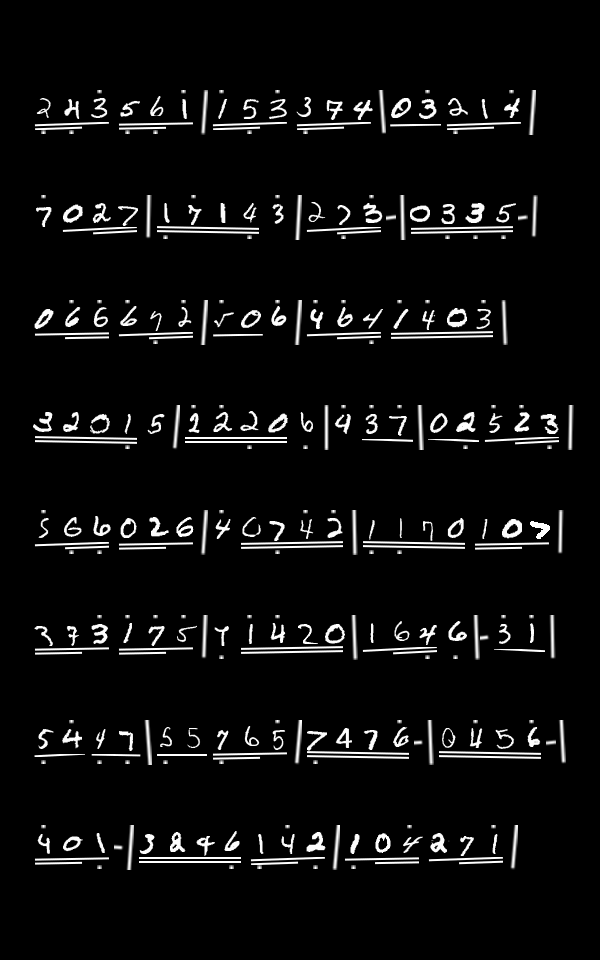 2 4 3 5 6 1 | 1 5 3 3 7 4 | 0 3 2 1 4 |
7 0 2 7 | 1 7 1 4 3 | 2 7 3 - | 0 3 3 5 - |
0 6 6 6 7 2 | 5 0 6 | 4 6 4 1 4 0 3 |
3 2 0 1 5 | 1 2 2 0 6 | 4 3 7 | 0 2 5 2 3 |
5 6 6 0 2 6 | 4 0 7 4 2 | 1 1 7 0 1 0 7 |
3 7 3 1 7 5 | 7 1 4 2 0 | 1 6 4 6 | - 3 1 |
5 4 4 7 | 5 5 7 6 5 | 7 4 7 6 - | 0 4 5 6 - |
4 0 1 - | 3 2 4 6 1 4 2 | 1 0 4 2 7 1 |